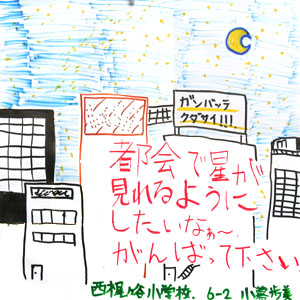 ガンバッテ
クダサイ!!!
都会で星が
見れるように
したいなぁ〜
がんばって下さい
西梶ヶ谷小学校. 6-2 小菜歩美